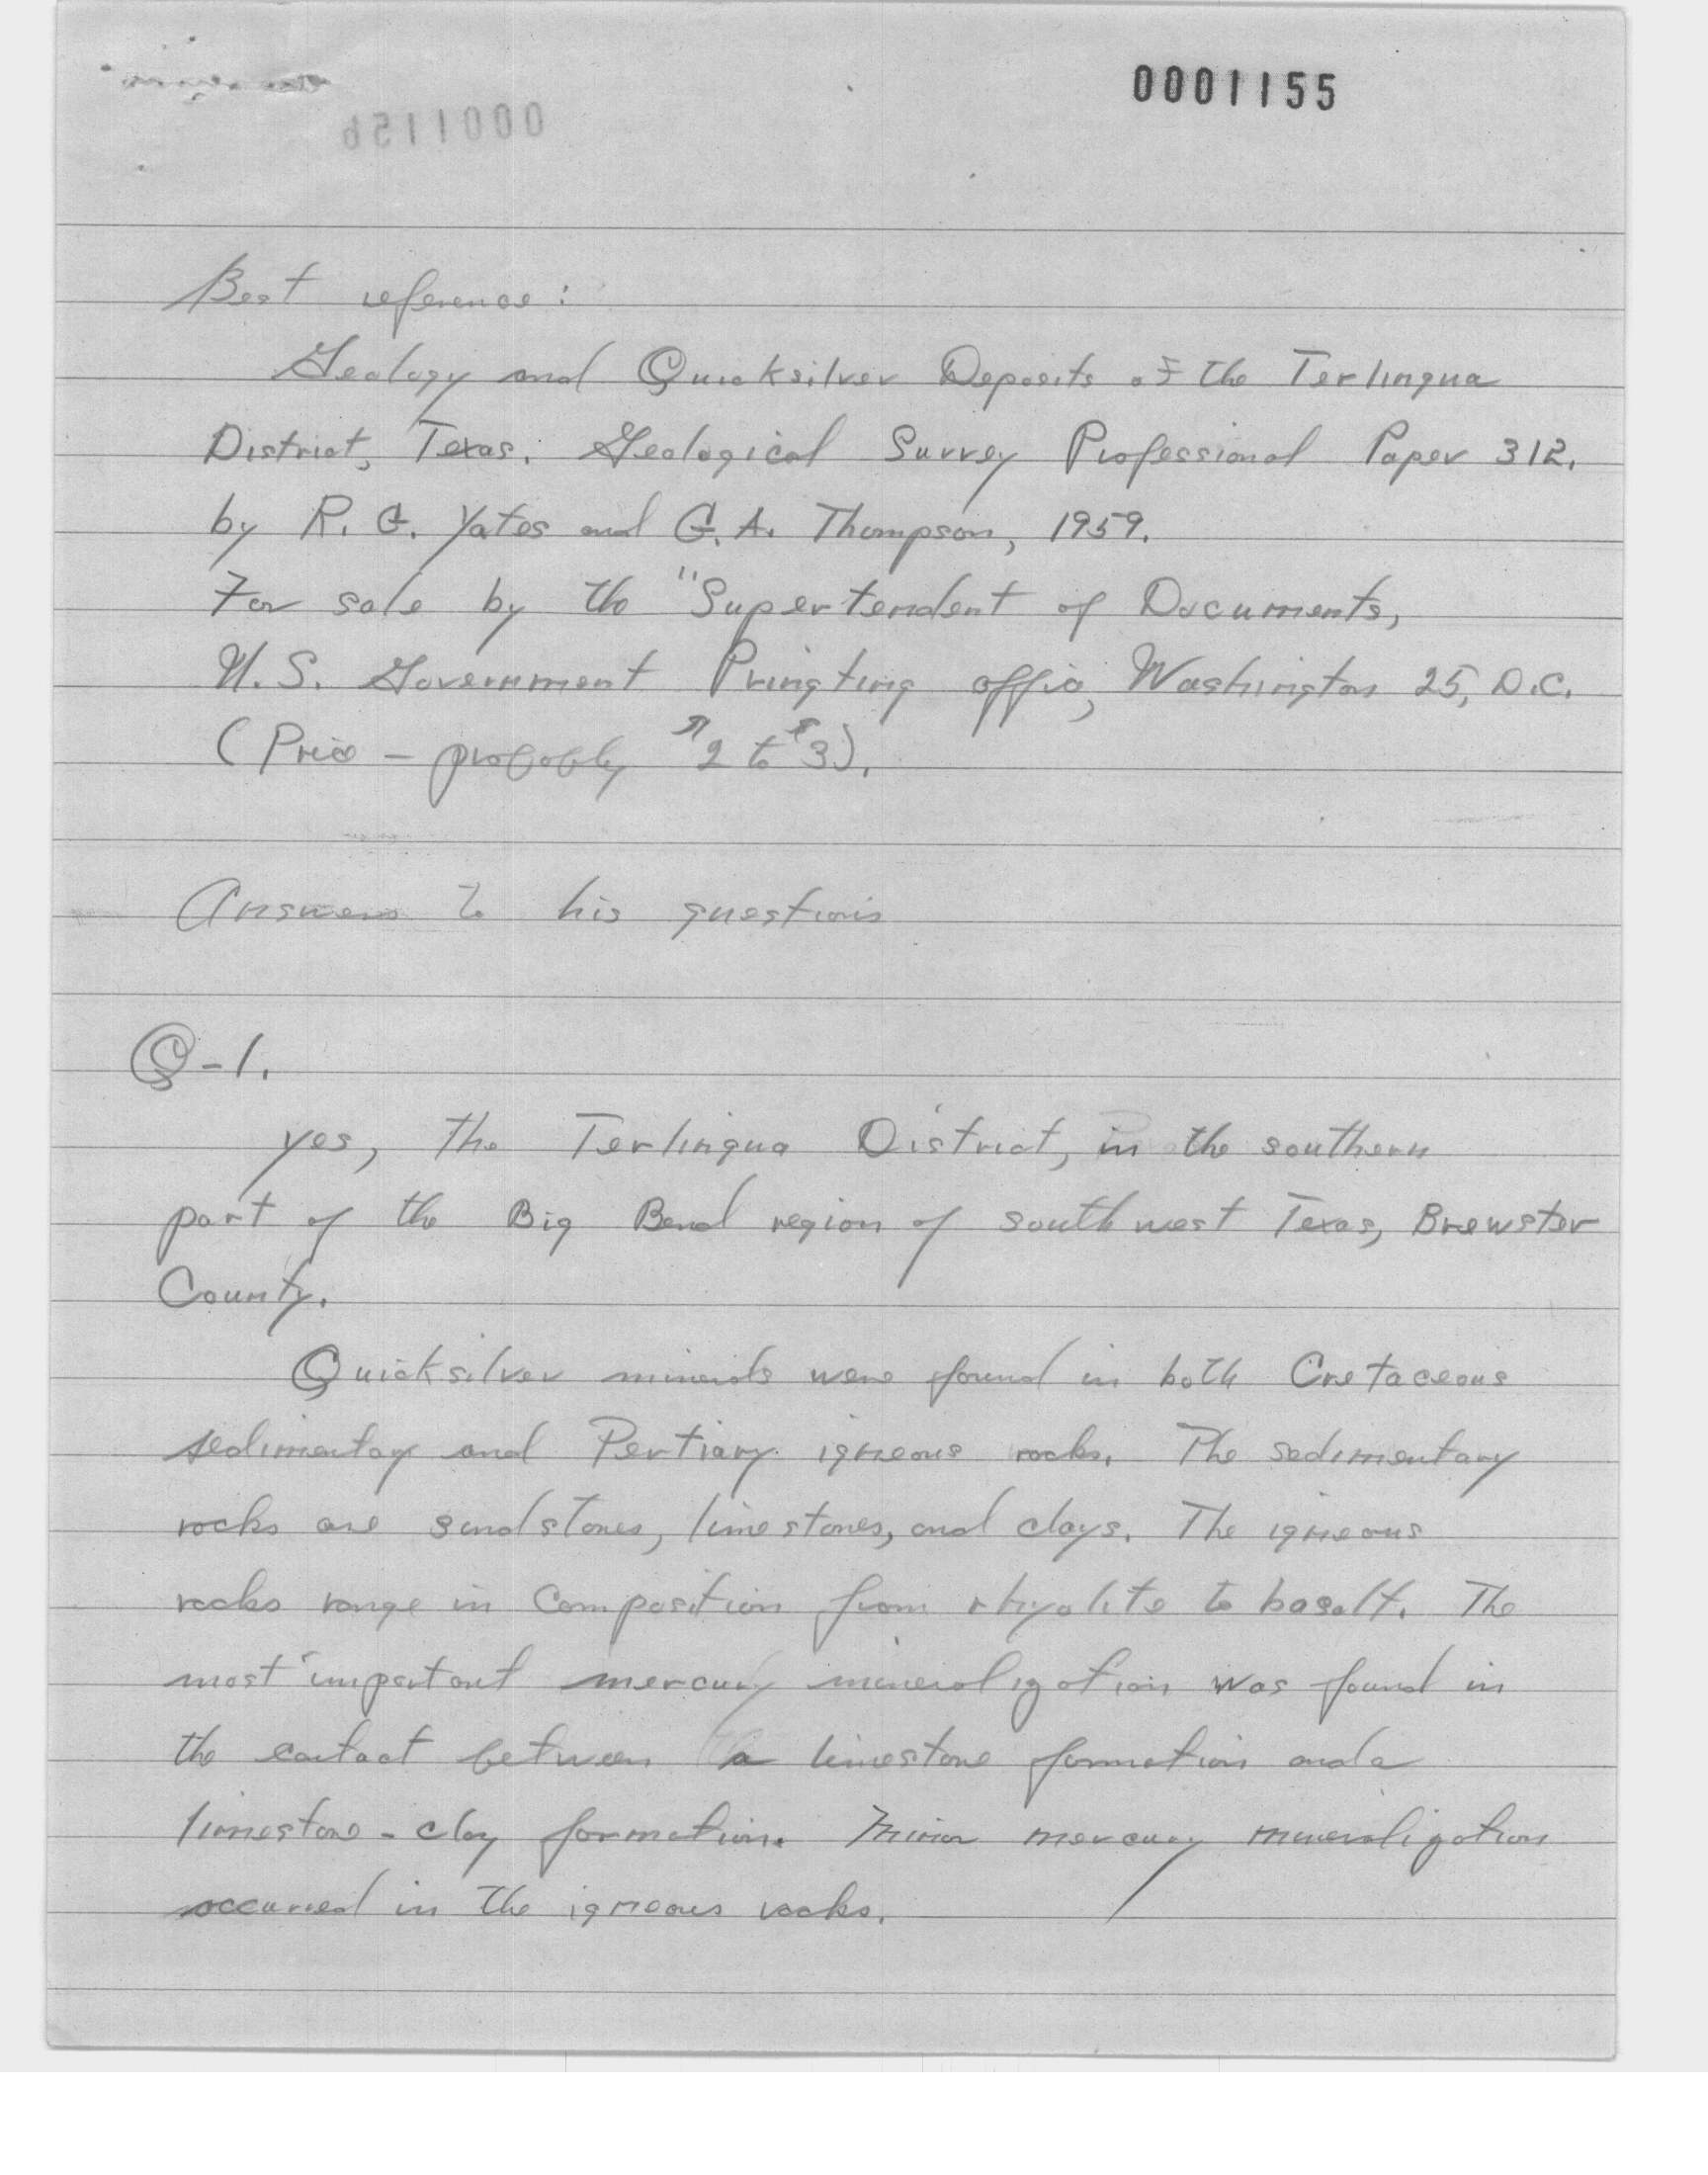 0001155
0001156
Best reference:
Geology and Quicksilver Deposits of the Terlingua
District, Texas. Geological Survey Professional Paper 312.
by R. G. Yates and G. A. Thompson, 1959.
For sale by the "Supertendent of Documents,
U.S. Government Pringting offic, Washington 25, D.C.
(Price - probably $2 to $3).
Answers to his questions
Q-1.
Yes, the Terlingua District, in the southern
part of the Big Bend region of southwest Texas, Brewster
County.
Quicksilver minerals were found in both Cretaceous
sedimentary and Tertiary igneous rocks. The sedimentary
rocks are sandstones, limestones, and clays. The igneous
rocks range in composition from rhyolite to basalt. The
most important mercury mineralization was found in
the contact between a limestone formation and a
limestone - clay formation. Minor mercury mineralization
occurred in the igneous rocks.